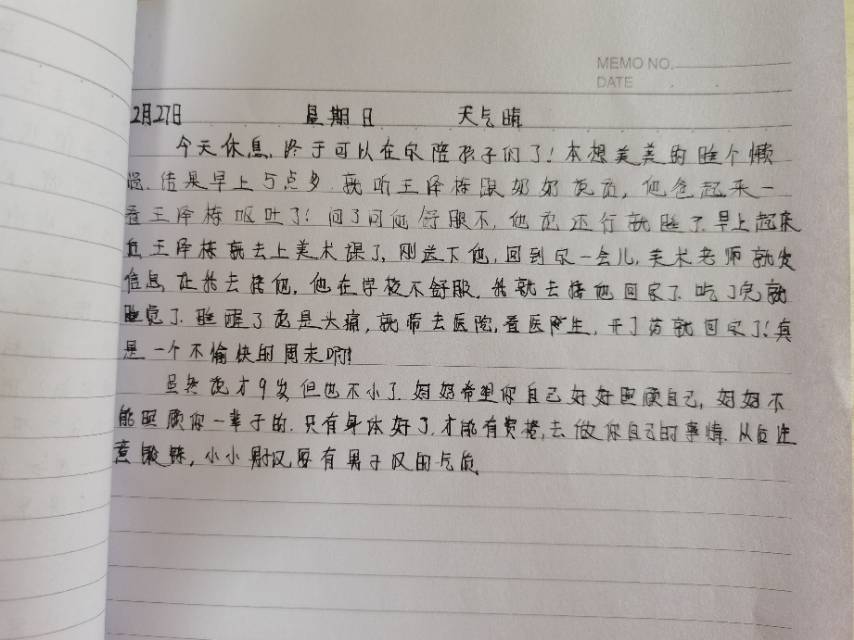 MEMO NO.
DATE
2月27日 星期日 天气晴
今天休息,终于可以在家陪孩子们了!本想美美的睡个懒
觉,结果早上5点多,就听王泽栋跟奶奶说,他爸起来一
看王泽栋呕吐了!问了问他舒服不,他说还行就睡了.早上起来
王泽栋就去上美术课了,刚送下他,回到家一会儿,美术老师就发
信息,让我去接他,他在学校不舒服,我就去接他回家了.吃了完就
睡觉了.睡醒了说是头痛,就带去医院,看医生,开了药就回家了!真
是一个不愉快的周末啊!
虽然说才9岁但也不小了.妈妈希望你自己好好照顾自己,妈妈不
能照顾你一辈子的.只有身体好了.才能有资格,去做你自己的事情.从后注
意锻炼,小小男子汉要有男子汉的气质